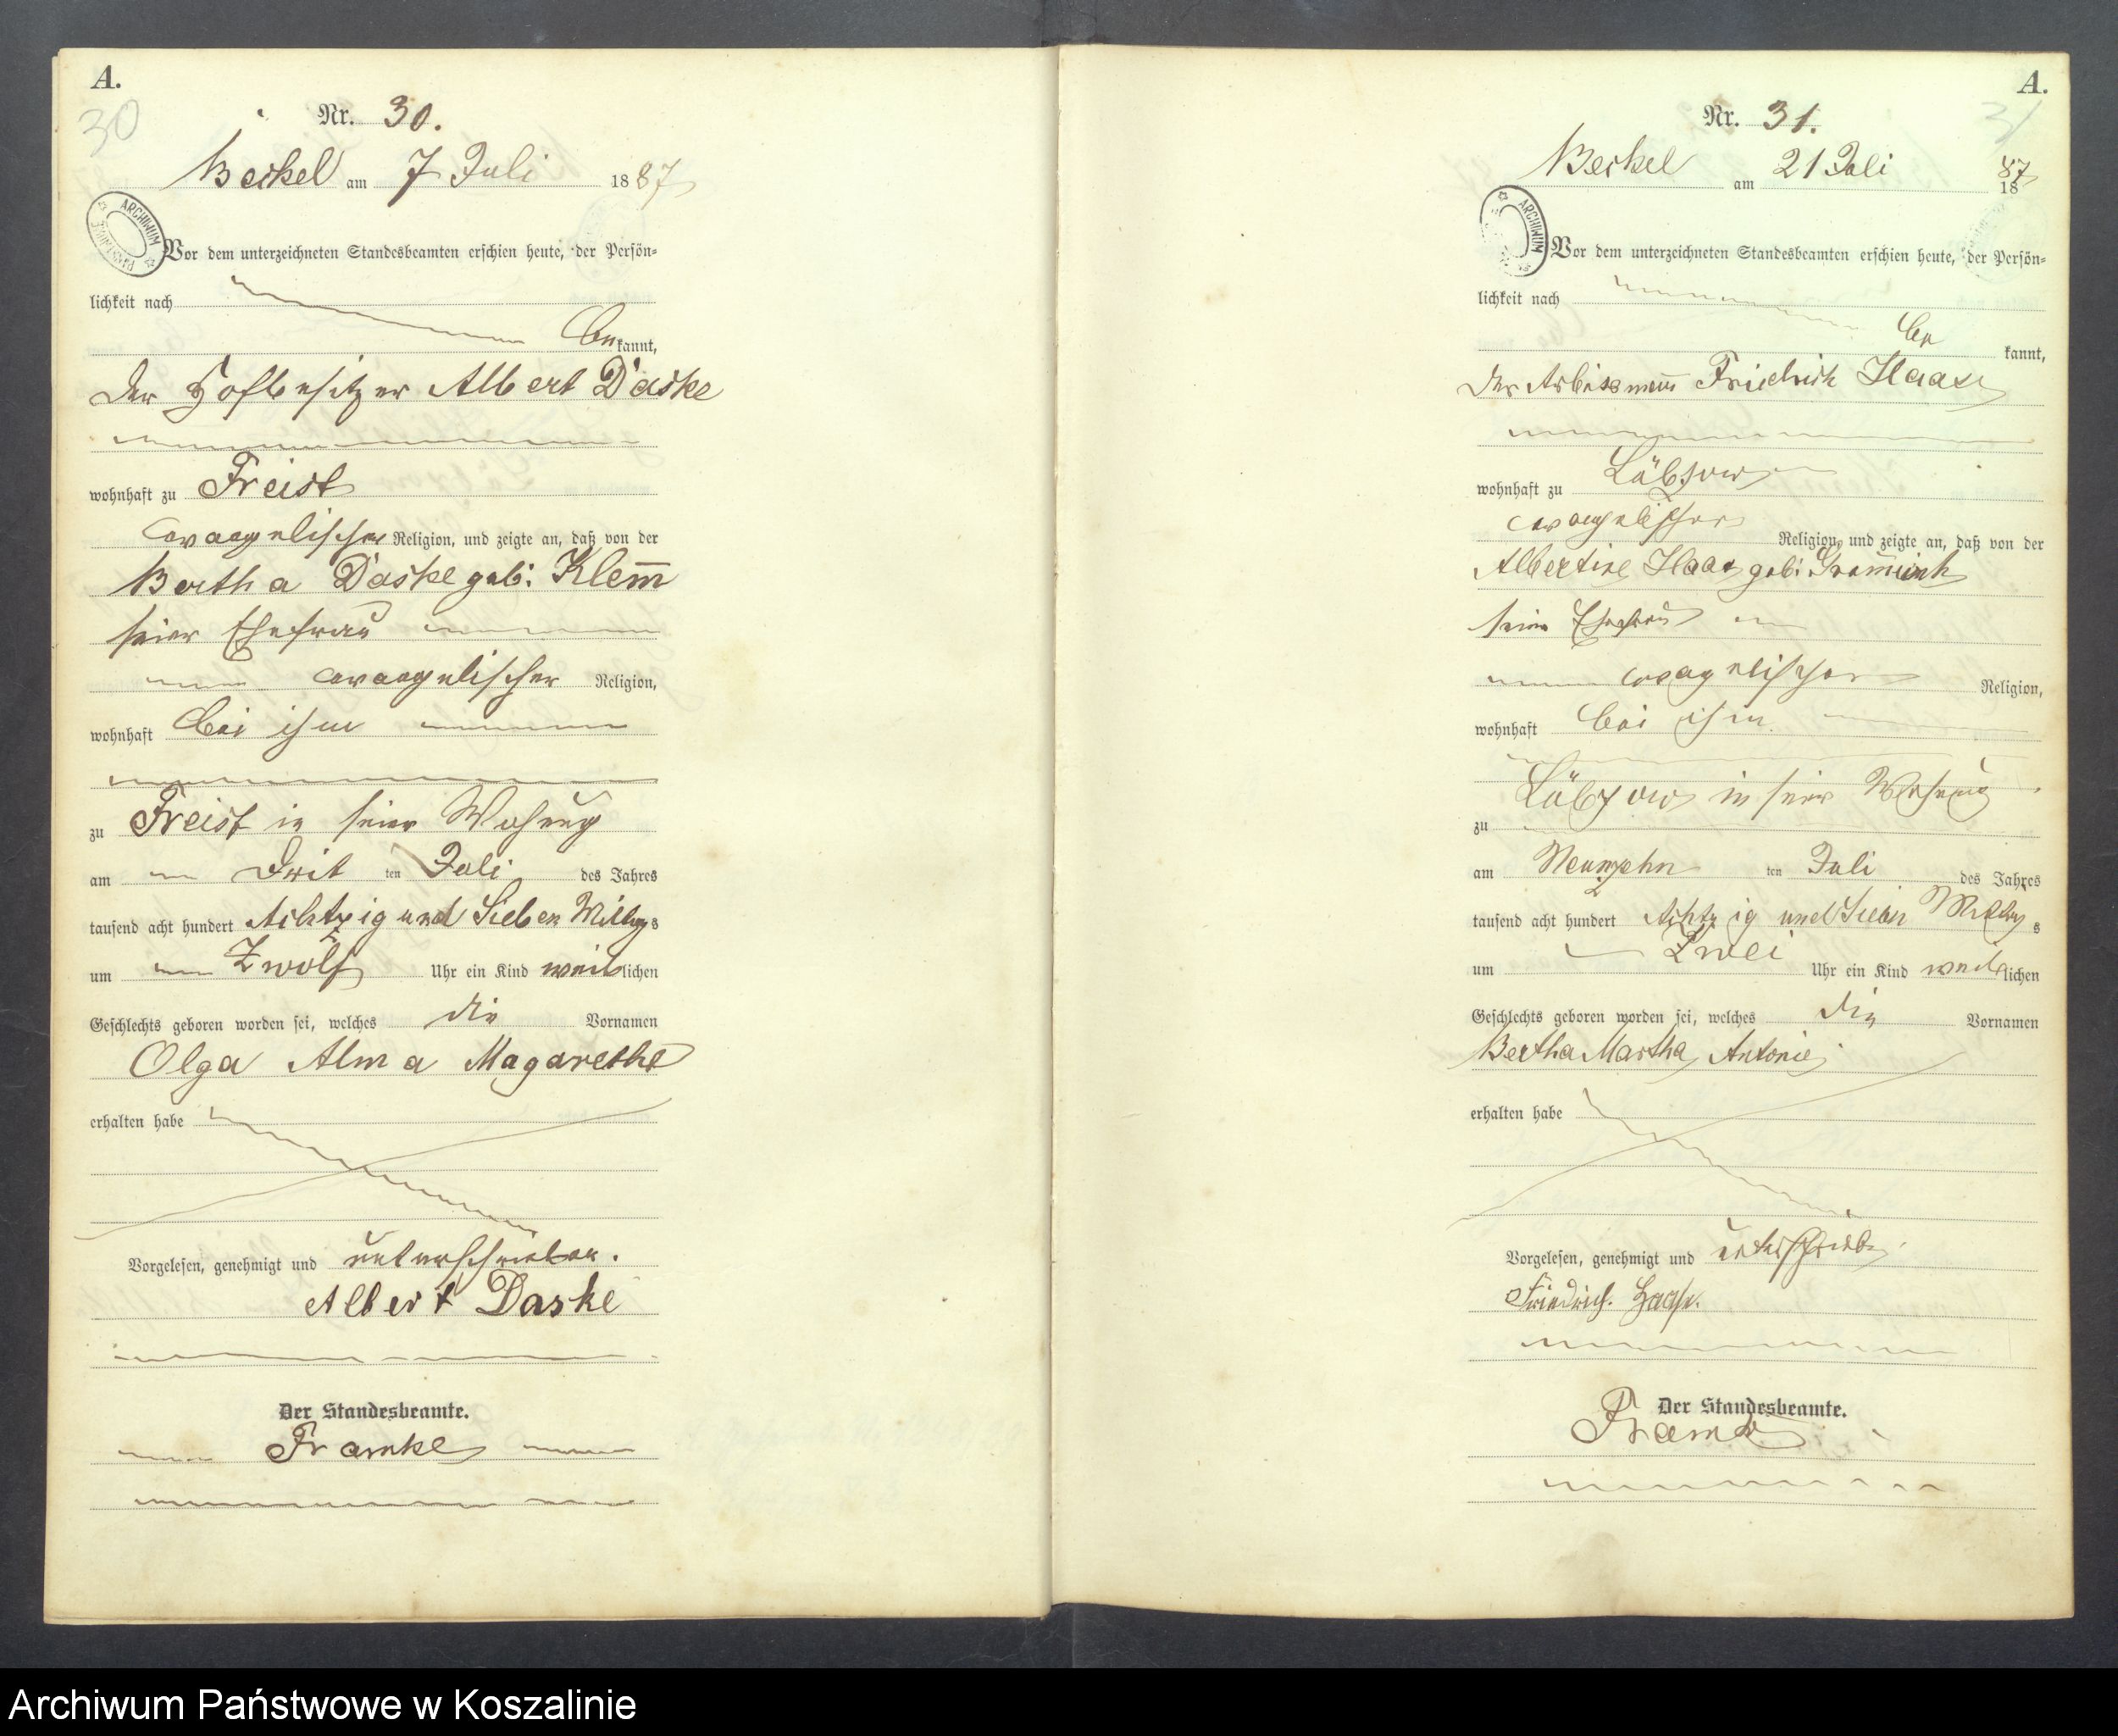 A.
30
Nr. 30.
Beckel am 7 Juli 1887
ARCHIWUM PAŃSTWOWE
Vor dem unterzeichneten Standesbeamten erschien heute, der Persön-
lichkeit nach
bekannt,
der Hofbesitzer Albert Daske
wohnhaft zu Freist
evangelischer Religion, und zeigte an, daß von der
Bertha Daske geb: Klem̄
seiner Ehefrau
evangelischer Religion,
wohnhaft bei ihm
zu Freist in seiner Wohnung
am Drit ten Juli des Jahres
tausend acht hundert Achtzig und Sieben Mittags
um Zwölf Uhr ein Kind weiblichen
Geschlechts geboren worden sei, welches die Vornamen
Olga Alma Magarethe
erhalten habe
Vorgelesen, genehmigt und unterschrieben.
Albert Daske
Der Standesbeamte.
Framke
A.
31
Nr. 31.
Beckel am 21 Juli 1887
ARCHIWUM
Vor dem unterzeichneten Standesbeamten erschien heute, der Persön-
lichkeit nach
bekannt,
der Arbeitsmann Friedrich Haase
wohnhaft zu Läbzow
evangelischer Religion, und zeigte an, daß von der
Albertine Haase geb:
seiner Ehefrau
evangelischer Religion,
wohnhaft bei ihm
zu Läbzow in seiner Wohnung
am Neunzehn ten Juli des Jahres
tausend acht hundert Achtzig und Sieben Mittags
um Zwei Uhr ein Kind weiblichen
Geschlechts geboren worden sei, welches die Vornamen
Bertha Martha Antonie
erhalten habe
Vorgelesen, genehmigt und unterschrieben.
Friedrich. Haase.
Der Standesbeamte.
Framke
Archiwum Państwowe w Koszalinie